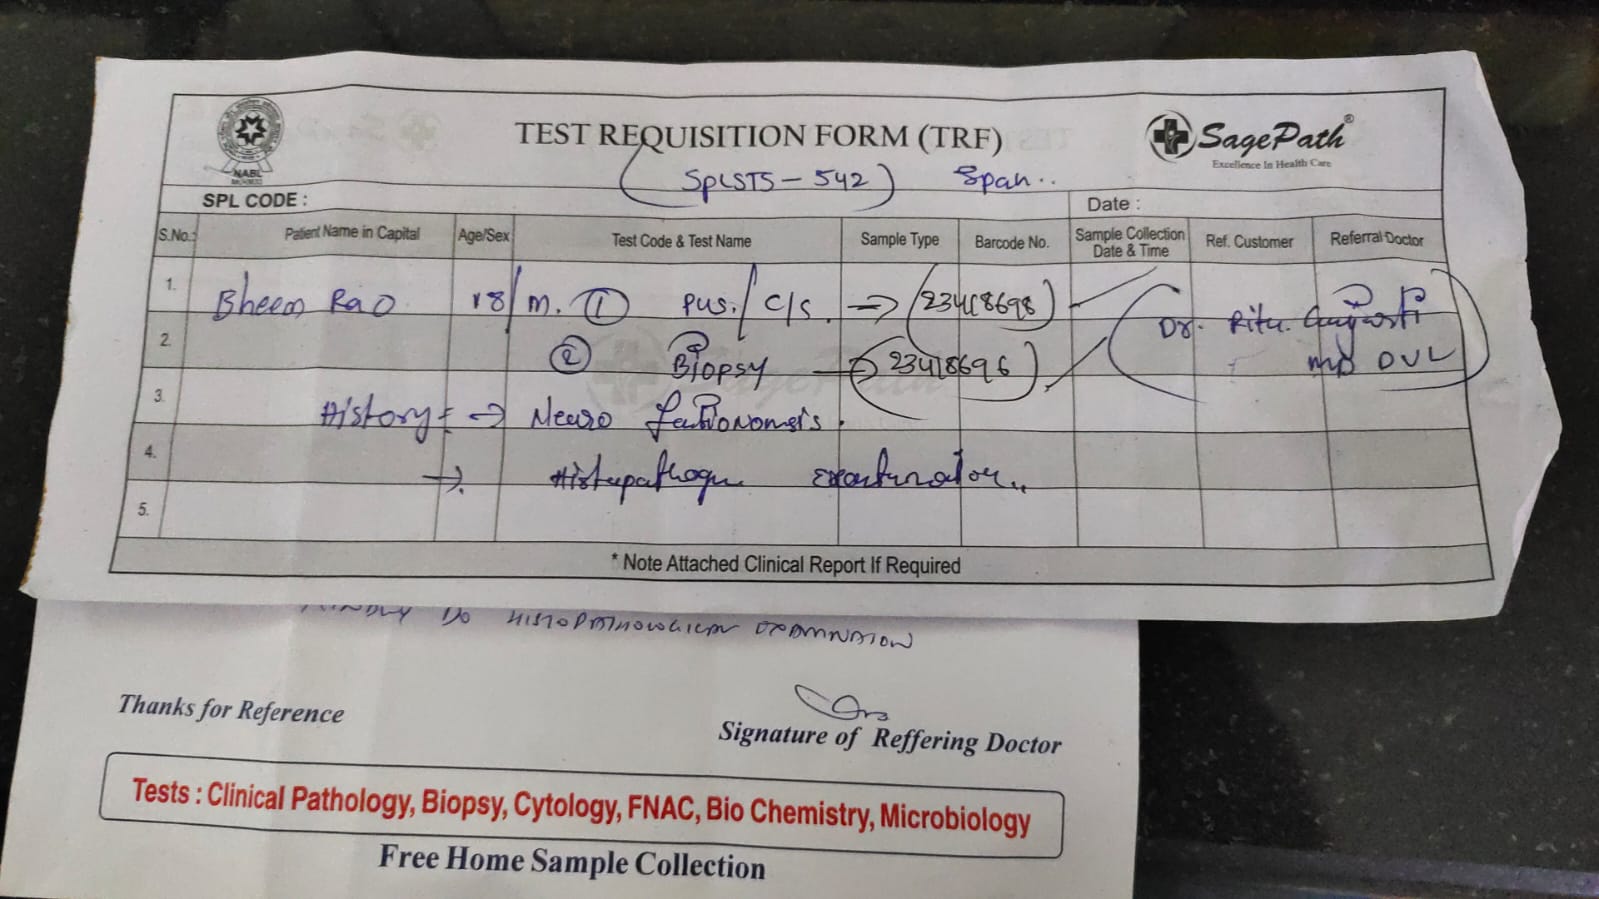 TEST REQUISITION FORM (TRF)
SagePath®
Excellence In Health Care
NABL
(SPLSTS-542) Span..
SPL CODE :
Date :
S.No. Patient Name in Capital Age/Sex Test Code & Test Name Sample Type Barcode No. Sample Collection Date & Time Ref. Customer Referral Doctor
1. Bheem Rao 18/m. ① Pus./C/s. → (23418698)
Dr. Ritu
2. ② Biopsy → 23418696) MD DVL
3. History → Neuro
4. →
5.
* Note Attached Clinical Report If Required
KINDLY DO HISTOPATHOLOGICAL EXAMINATION
Thanks for Reference
Signature of Reffering Doctor
Tests : Clinical Pathology, Biopsy, Cytology, FNAC, Bio Chemistry, Microbiology
Free Home Sample Collection